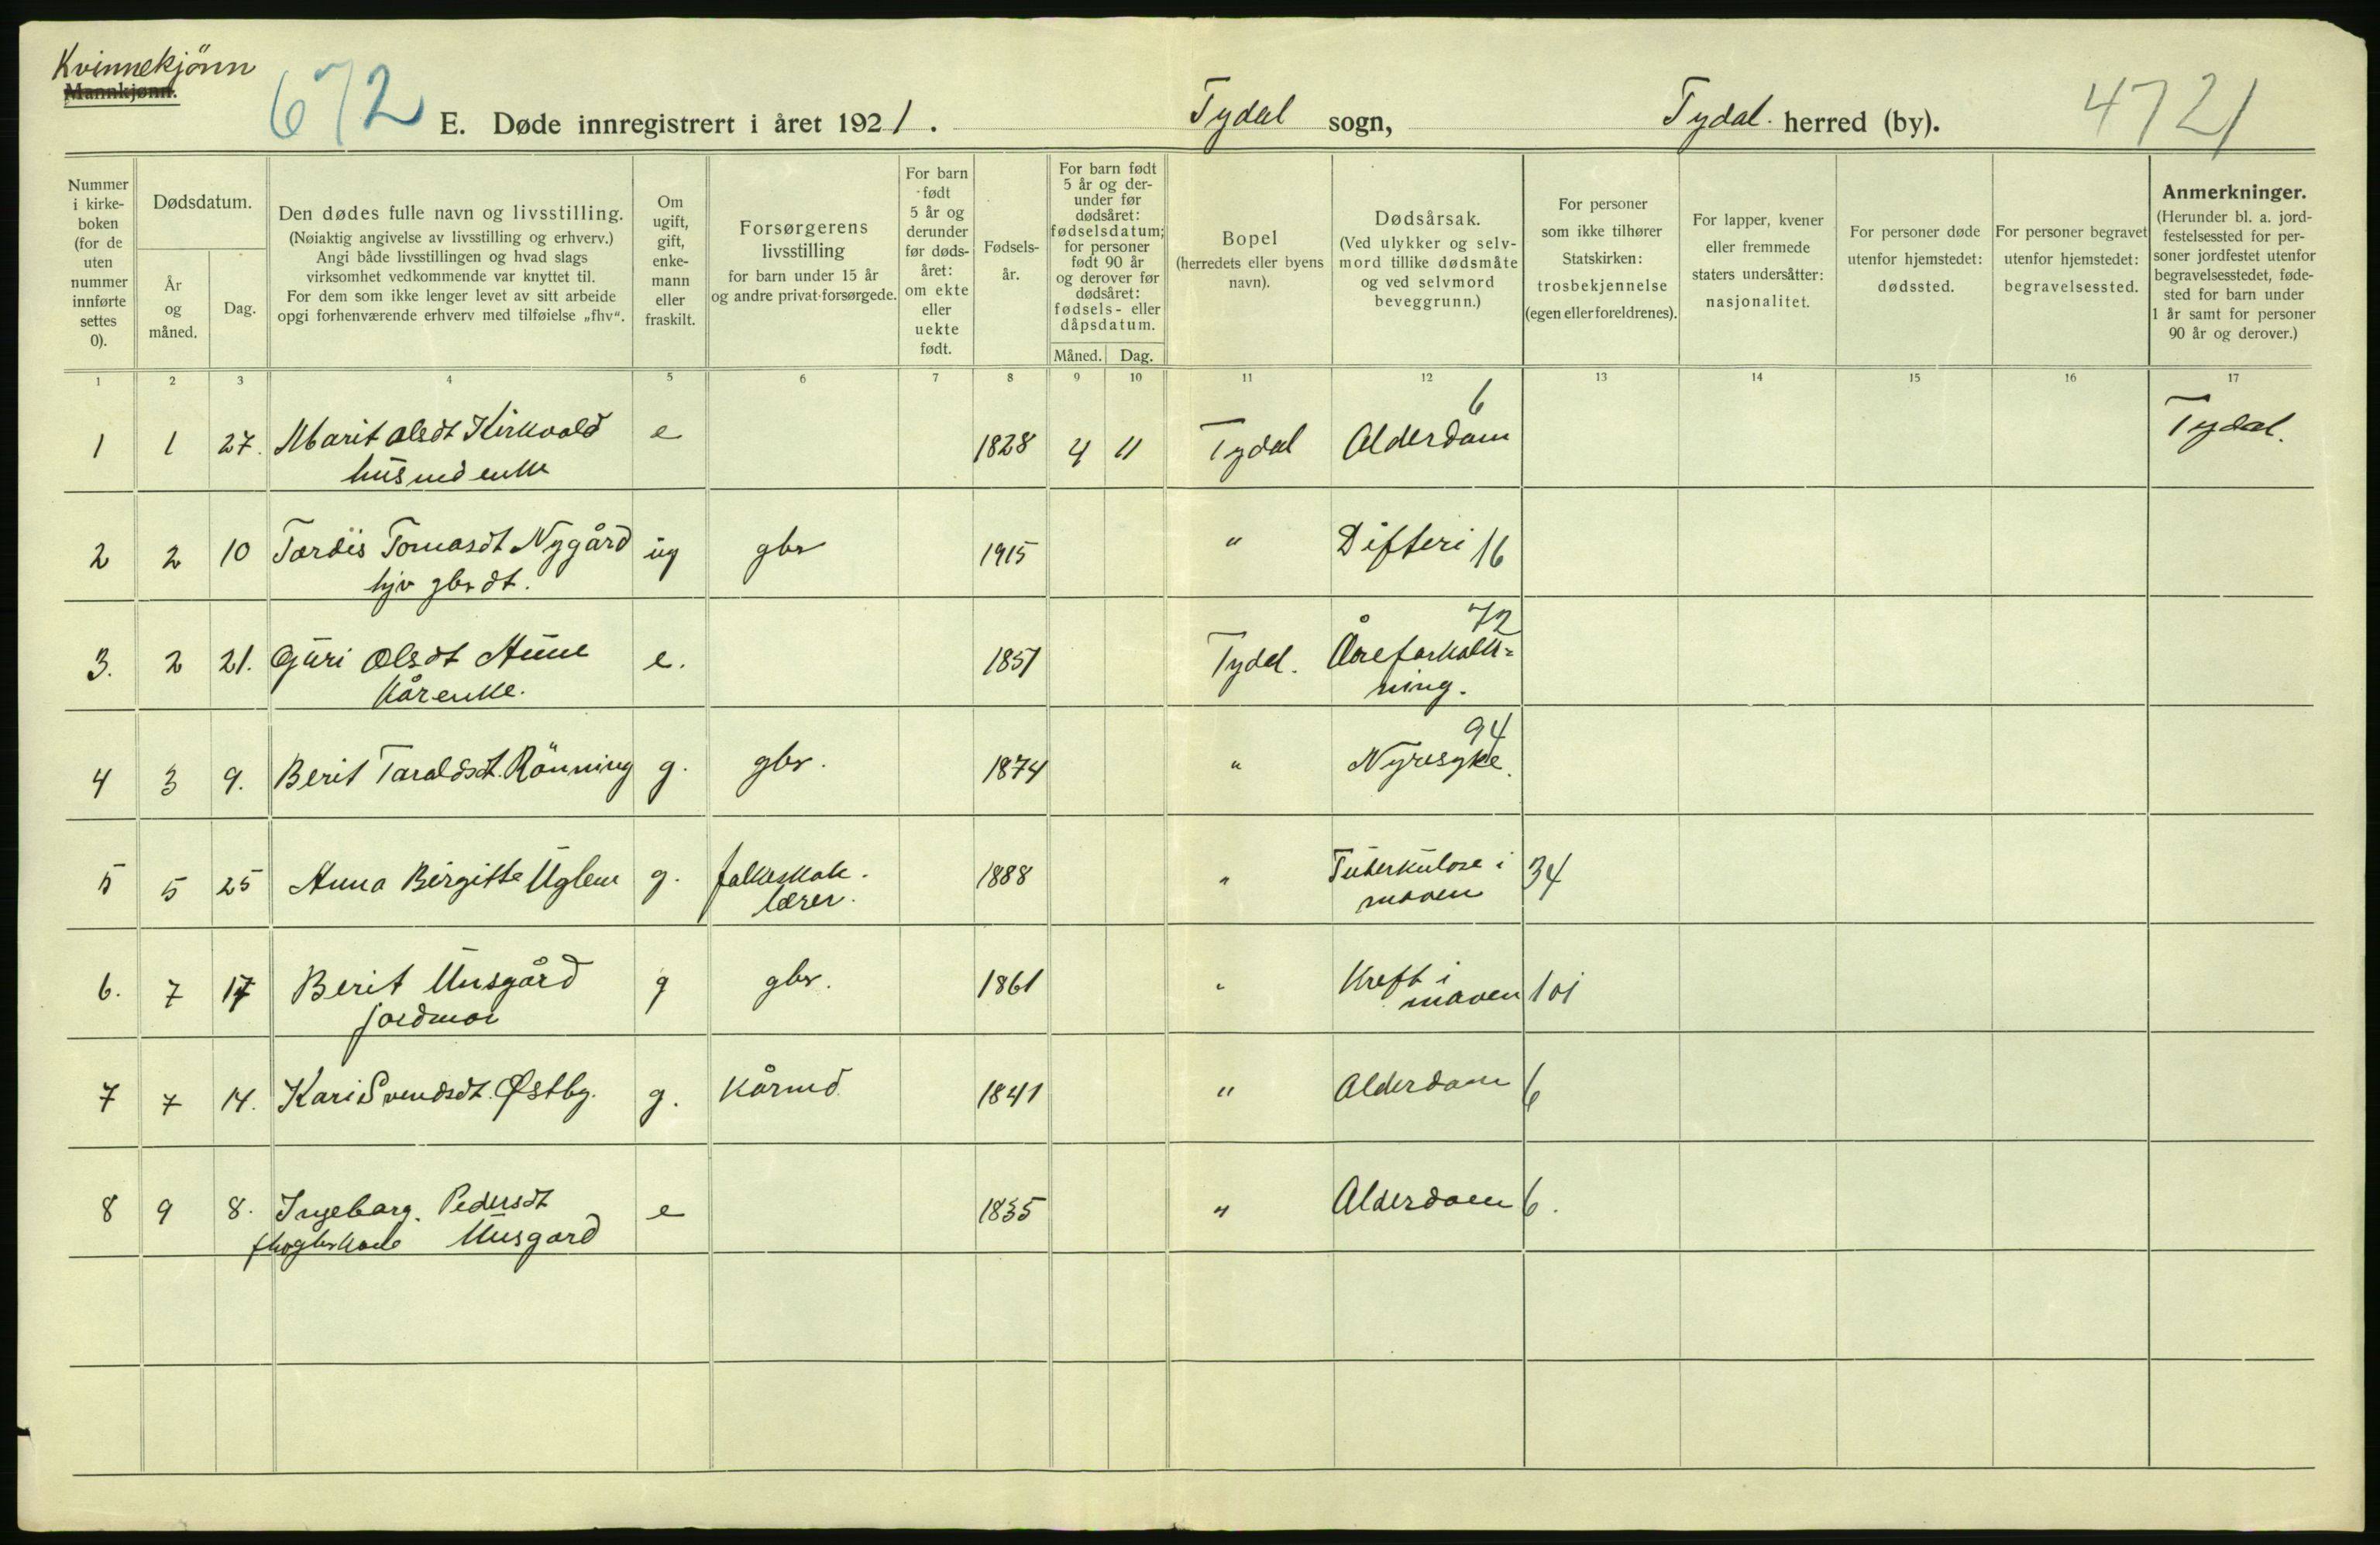 Kvinnekjönn
Mannkjønn.
672
E. Døde innregistrert i året 1921.
Tydal sogn,
Tydal. herred (by).
4721
Nummer i kirke- boken (for de uten nummer innførte settes 0).
Dødsdatum.
År og måned.
Dag.
Den dødes fulle navn og livsstilling.
(Nøiaktig angivelse av livsstilling og erhverv.)
Angi både livsstillingen og hvad slags
virksomhet vedkommende var knyttet til.
For dem som ikke lenger levet av sitt arbeide
opgi forhenværende erhverv med tilføielse „fhv“.
Om ugift, gift, enke- mann eller fraskilt.
Forsørgerens
livsstilling
for barn under 15 år
og andre privat-forsørgede.
For barn født 5 år og derunder før døds- året: om ekte eller uekte født.
Fødsels- år.
For barn født 5 år og der- under før dødsåret: fødselsdatum; for personer født 90 år og derover før dødsåret: fødsels- eller dåpsdatum.
Måned. Dag.
Bopel
(herredets eller byens
navn).
Dødsårsak.
(Ved ulykker og selv-
mord tillike dødsmåte
og ved selvmord
beveggrunn.)
For personer
som ikke tilhører
Statskirken:
trosbekjennelse
(egen eller foreldrenes).
For lapper, kvener
eller fremmede
staters undersåtter:
nasjonalitet.
For personer døde
utenfor hjemstedet:
dødssted.
For personer begravet
utenfor hjemstedet:
begravelsessted.
Anmerkninger.
(Herunder bl. a. jord-
festelsessted for per-
soner jordfestet utenfor
begravelsesstedet, føde-
sted for barn under
1 år samt for personer
90 år og derover.)
1 2 3 4 5 6 7 8 9 10 11 12 13 14 15 16 17
6
1 1 27. Marit Olsdt Kirkvold e 1828 4 11 Tydal Alderdom Tydal.
husmd enke
2 2 10 Tordis Tomasdt Nygård ug gbr 1915 " Difteri 16
hjv gbr dt.
72
3. 2 21. Guri Olsdt Aune e. 1851 Tydal. Åreforkalk=
Kårenke. ning.
94
4 3 9. Berit Taraldsdt. Rönning g. gbr. 1874 " Nyresyke.
5 5 25 Anna Birgitte Uglem g. folkeskole. 1888 " Tuberkulose i 34
lærer. maven
6. 7 17 Berit Unsgård g gbr. 1861 " Kreft i
jordmor maven 101
7 7 14. Kari Svendsdt. Østby. g. Kårmd 1841 " Alderdom 6
8 9 8. Ingeborg. Pedersdt e 1835 " Alderdom 6.
fhvgbrkone Unsgård